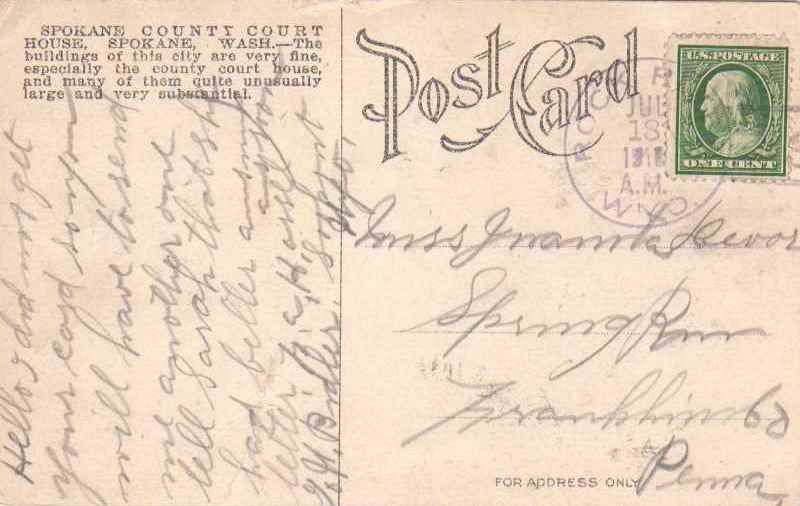 SPOKANE COUNTY COURT
HOUSE, SPOKANE, WASH.—The
buildings of this city are very fine,
especially the county court house,
and many of them quite unusually
large and very substantial.
Post Card
ROCK R
JUL
18
A.M.
WYO.
U.S. POSTAGE
ONE CENT
Miss Juanita
Spring Run
Franklin Co
Penna,
FOR ADDRESS ONLY
Hello I did not get
your card so you
will have to send
me another one
tell Sarah that she
had better answer
letter
Wyo.